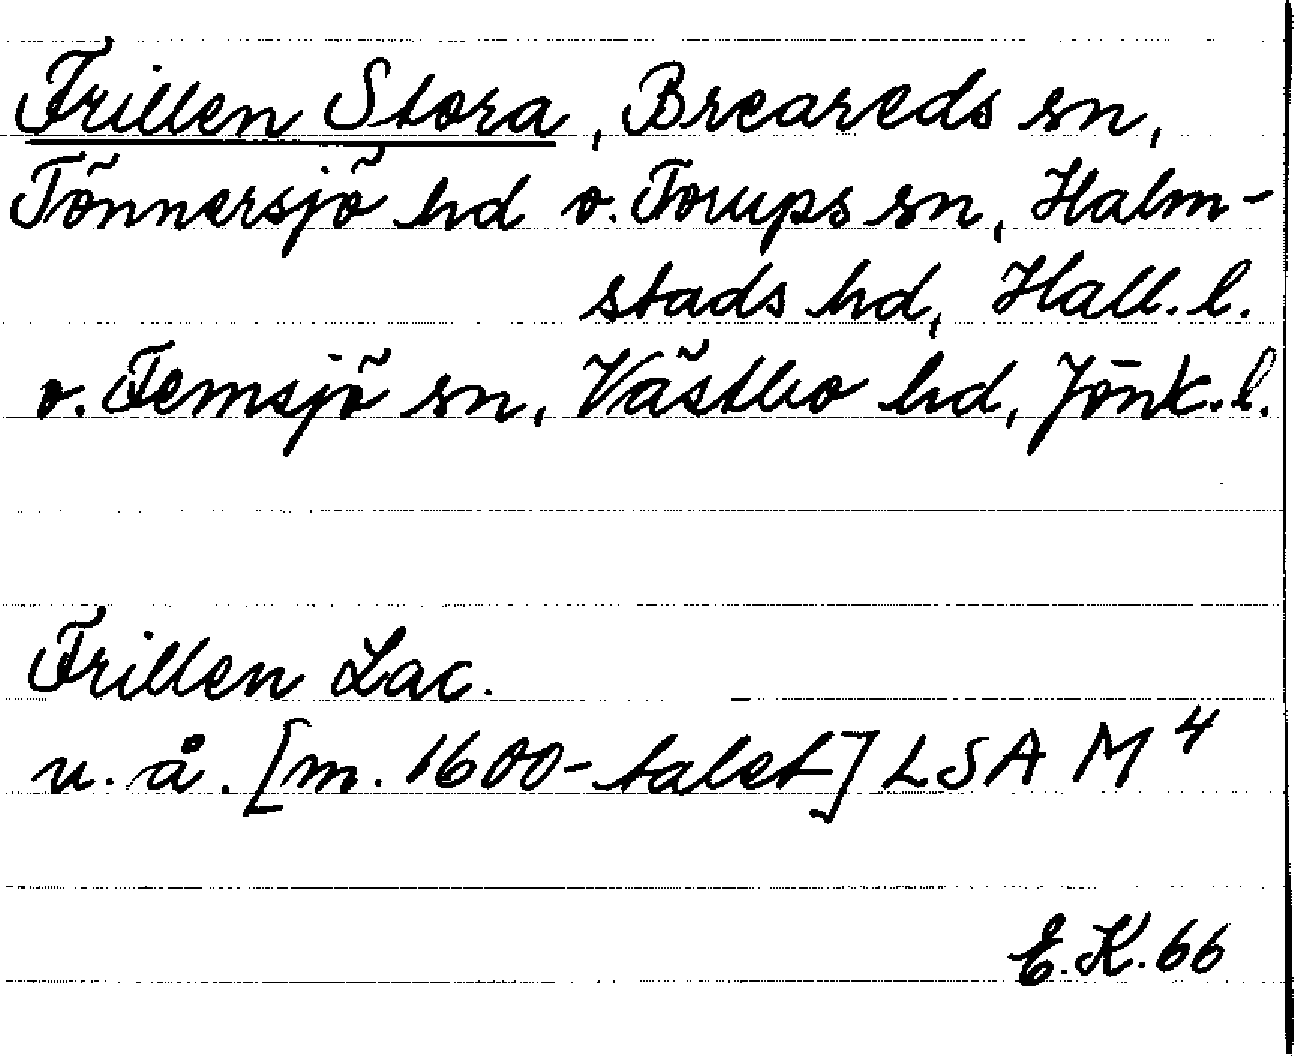 Frillen Stora, Breareds sn,
Tönnersjö hd o. Torups sn, Halm-
stads hd, Hall. l.
o. Femsjö sn, Västbo hd, Jönk. l.
Frillen Lac.
u. å. [m. 1600-talet] LSA M 4
E.K. 66